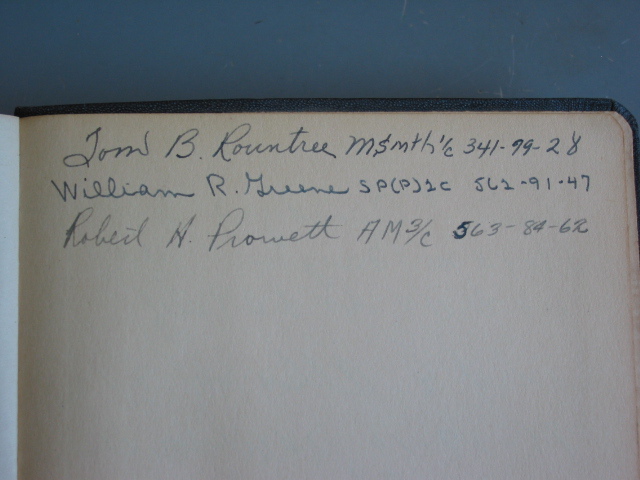 Tom B. Rountree M$mth1/c 341-99-28
William R. Greene SP(P)2C 562-91-47
Robert H. Prowett AM3/c 563-84-62